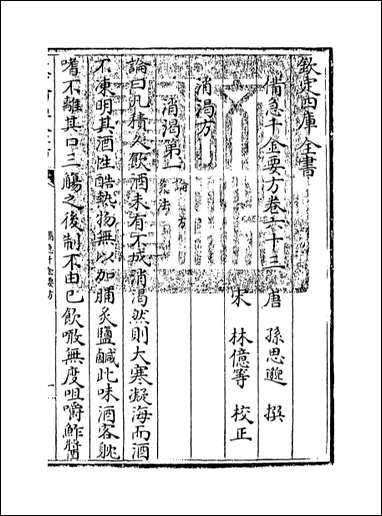 欽定四庫全書
備急千金要方卷六十三
唐 孫思邈 撰
宋 林億等 校正
消渴方
消渴第一
論曰凡積久飲酒未有不成消渴然則大寒凝海而酒
不凍明其酒性酷熱物無以加脯炙鹽鹹此味酒客躭
嗜不離其口三觴之後制不由己飲噉無度咀嚼鮓醬